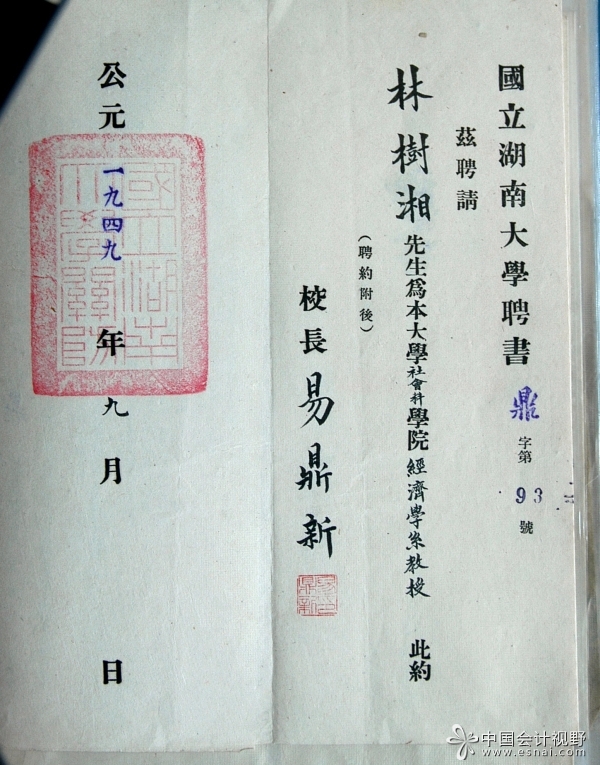 國立湖南大學聘書 鼎字第93號
茲聘請
林樹湘先生為本大學社會科學院經濟學系教授 此約
(聘約附後)
校長 易鼎新
公元一九四九年九月 日
國立湖南大學關防
中国会计视野
www.esnai.com